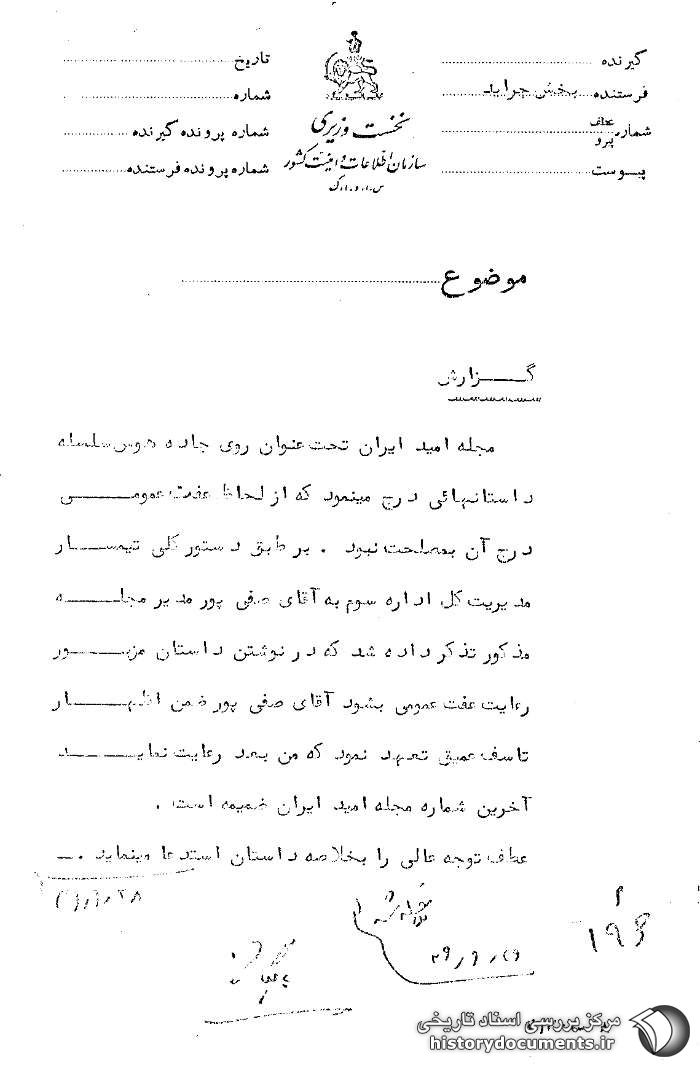 گیرنده
فرستنده بخش جراید
شماره عطف پیرو
پیوست
نخست وزیری
سازمان اطلاعات و امنیت کشور
س.ا.و.ا.ک
تاریخ
شماره
شماره پرونده گیرنده
شماره پرونده فرستنده
موضوع
گـــزارش
مجله امید ایران تحت عنوان روی جاده هوس سلسله
داستانهائی درج مینمود که از لحاظ عفت عمومـــی
درج آن بمصلحت نبود . بر طبق دستور کلی تیمســـار
مدیریت کل اداره سوم به آقای صفی پور مدیر مجلـــه
مذکور تذکر داده شد که در نوشتن داستان مزبـــور
رعایت عفت عمومی بشود آقای صفی پور ضمن اظهـــار
تاسف عمیق تعهد نمود که من بعد رعایت نمایـــد
آخرین شماره مجله امید ایران ضمیمه است .
عطف توجه عالی را بخلاصه داستان استدعا مینماید .ــ
مرکز بررسی اسناد تاریخی
historydocuments.ir